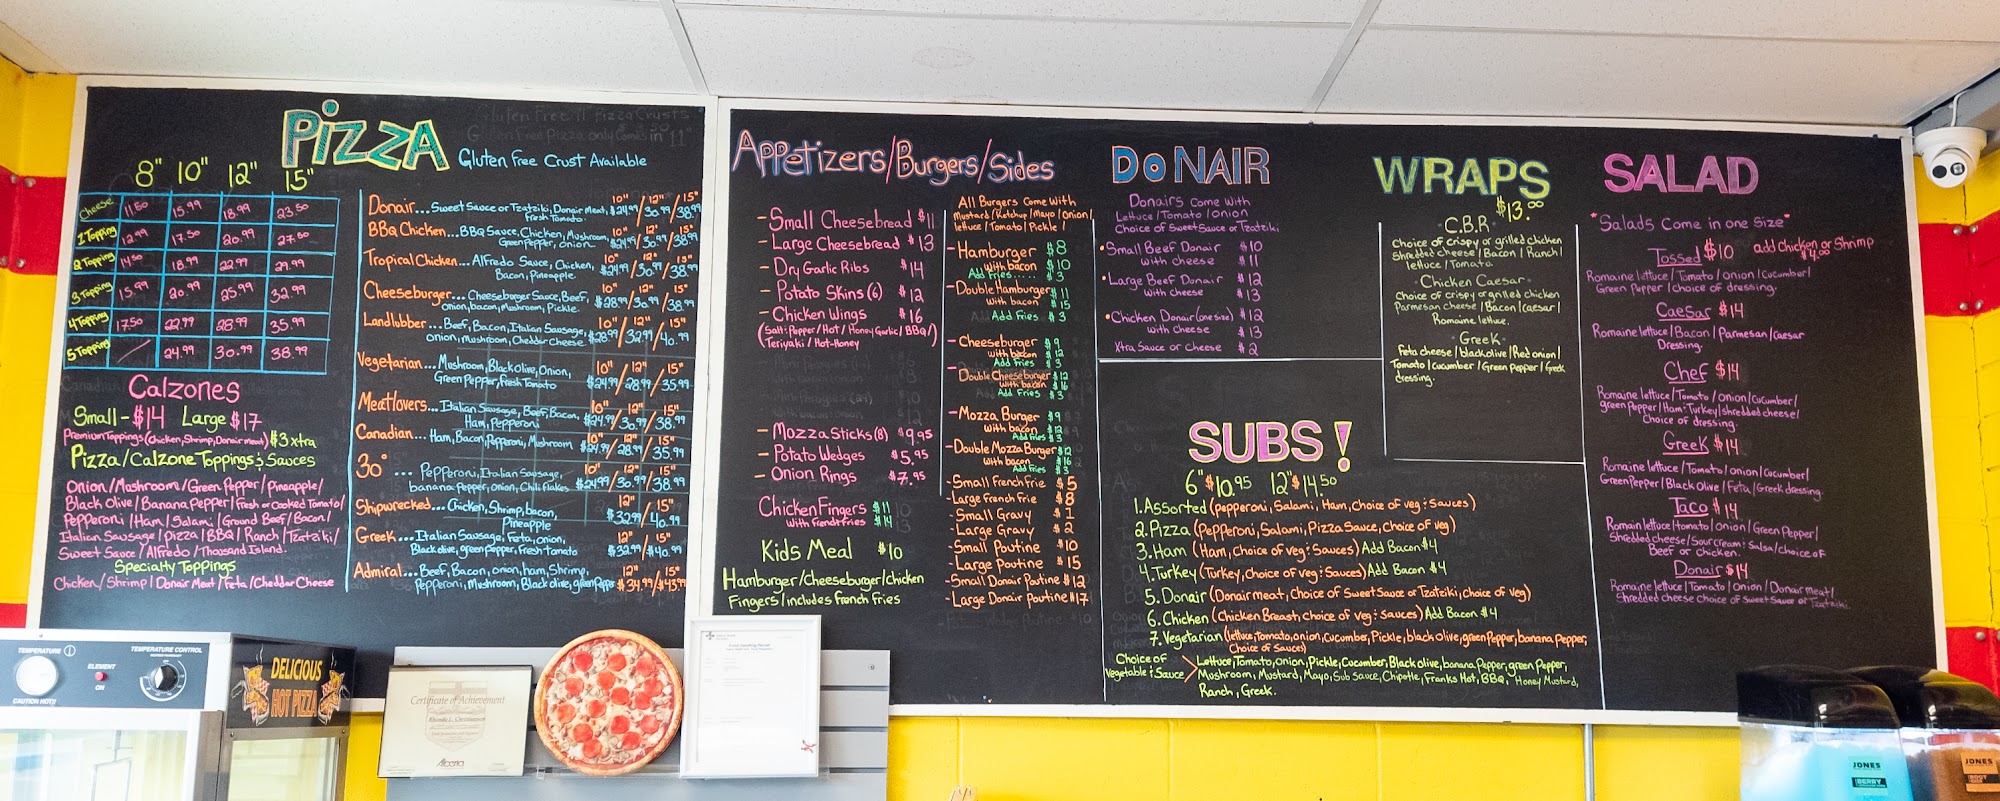 PIZZA Gluten Free Crust Available
8" 10" 12" 15"
Cheese 11.50 15.99 18.99 23.50
1 Topping 12.99 17.50 20.99 27.50
2 Topping 14.50 18.99 22.99 29.99
3 Topping 15.99 20.99 25.99 32.99
4 Topping 17.50 22.99 28.99 35.99
5 Topping / 24.99 30.99 38.99
Calzones
Small - $14 Large $17
Premium Toppings (chicken, Shrimp, Donair meat) $3 xtra
Pizza/Calzone Toppings & Sauces
Onion/Mushroom/Green Pepper/Pineapple/
Black Olive/Banana Pepper/Fresh or Cooked Tomato/
Pepperoni/Ham/Salami/Ground Beef/Bacon/
Italian Sausage/Pizza/BBQ/Ranch/Tzatziki/
Sweet Sauce/Alfredo/Thousand Island.
Specialty Toppings
Chicken/Shrimp/Donair Meat/Feta/Cheddar Cheese
Donair... Sweet Sauce or Tzatziki, Donair Meat, 10" 12" 15"
Fresh Tomato $24.99/30.99/38.99
BBQ Chicken... BBQ Sauce, Chicken, Mushroom, 10" 12" 15"
Green Pepper, Onion $24.99/30.99/38.99
Tropical Chicken... Alfredo Sauce, Chicken, 10" 12" 15"
Bacon, Pineapple $24.99/30.99/38.99
Cheeseburger... Cheeseburger Sauce, Beef, 10" 12" 15"
onion, bacon, Mushroom, Pickle $28.99/30.99/38.99
Landlubber... Beef, Bacon, Italian Sausage, 10" 12" 15"
onion, Mushroom, Cheddar Cheese $28.99/32.99/40.99
Vegetarian... Mushroom, Black Olive, Onion, 10" 12" 15"
Green Pepper, Fresh Tomato $24.99/28.99/35.99
Meatlovers... Italian Sausage, Beef, Bacon, 10" 12" 15"
Ham, Pepperoni $24.99/30.99/38.99
Canadian... Ham, Bacon, Pepperoni, Mushroom 10" 12" 15"
$24.99/28.99/35.99
30° .... Pepperoni, Italian Sausage, 10" 12" 15"
banana Pepper, Onion, Chili flakes $24.99/30.99/38.99
Shipwrecked... Chicken, Shrimp, bacon, 12" 15"
Pineapple $32.99/40.99
Greek... Italian Sausage, Feta, onion, 12" 15"
Black olive, green Pepper, Fresh tomato $32.99/$40.99
Admiral... Beef, Bacon, onion, ham, Shrimp, 12" 15"
Pepperoni, Mushroom, Black olive, green Pepper $34.99/$43.99
Appetizers/Burgers/Sides
- Small Cheesebread $11
- Large Cheesebread $13
- Dry Garlic Ribs $14
- Potato Skins (6) $12
- Chicken Wings $16
(Salt & Pepper/Hot/Honey Garlic/BBQ/)
Teriyaki/Hot-Honey
- Mozza Sticks (8) $9.95
- Potato Wedges $5.95
- Onion Rings $7.95
Chicken Fingers $11
with French fries $14
Kids Meal $10
Hamburger/Cheeseburger/Chicken
Fingers/includes French Fries
All Burgers Come With
Mustard/Ketchup/Mayo/Onion/
lettuce/Tomato/Pickle/
- Hamburger $8
with bacon $10
Add fries...... $3
- Double Hamburger $11
with bacon $15
Add Fries $3
- Cheeseburger $9
with bacon $12
Add Fries $3
- Double Cheeseburger $12
with bacon $16
Add Fries $3
- Mozza Burger $9
with bacon $12
Add fries $3
- Double Mozza Burger $12
with bacon $16
Add Fries $3
- Small French Frie $5
- Large French Frie $8
- Small Gravy $1
- Large Gravy $2
- Small Poutine $10
- Large Poutine $15
- Small Donair Poutine $12
- Large Donair Poutine $17
DONAIR
Donairs Come With
Lettuce/Tomato/Onion
Choice of Sweet Sauce or Tzatziki
• Small Beef Donair $10
with cheese $11
• Large Beef Donair $12
with cheese $13
• Chicken Donair (one size) $12
with cheese $13
Xtra Sauce or Cheese $2
WRAPS
$13.00
C.B.R
Choice of crispy or grilled chicken
Shredded cheese/Bacon/Ranch/
lettuce/Tomato.
Chicken Caesar
Choice of crispy or grilled chicken
Parmesan cheese/Bacon/Caesar/
Romaine lettuce.
Greek
Feta cheese/black olive/Red onion/
Tomato/cucumber/Green Pepper/Greek
dressing.
SUBS!
6" $10.95 12" $14.50
1. Assorted (Pepperoni, Salami, Ham, Choice of veg & Sauces)
2. Pizza (Pepperoni, Salami, Pizza Sauce, Choice of veg)
3. Ham (Ham, Choice of veg & Sauces) Add Bacon $4
4. Turkey (Turkey, Choice of veg & Sauces) Add Bacon $4
5. Donair (Donair meat, Choice of Sweet Sauce or Tzatziki, Choice of veg)
6. Chicken (Chicken Breast, Choice of veg & Sauces) Add Bacon $4
7. Vegetarian (lettuce, tomato, onion, cucumber, Pickle, black olive, green Pepper, banana Pepper,
Choice of Sauces)
Choice of Vegetable & Sauce > Lettuce, Tomato, Onion, Pickle, Cucumber, Black olive, banana Pepper, green Pepper,
Mushroom, Mustard, Mayo, Sub Sauce, Chipotle, Franks Hot, BBQ, Honey Mustard,
Ranch, Greek.
SALAD
"Salads Come in one Size"
Tossed $10 add chicken or Shrimp $4.00
Romaine lettuce/Tomato/onion/cucumber/
Green Pepper/choice of dressing.
Caesar $14
Romaine lettuce/Bacon/Parmesan/caesar
Dressing.
Chef $14
Romaine lettuce/Tomato/onion/cucumber/
green Pepper/Ham & Turkey/shredded cheese/
Choice of dressing.
Greek $14
Romaine lettuce/Tomato/Onion/cucumber/
Green Pepper/Black Olive/Feta/Greek dressing.
Taco $14
Romain lettuce/Tomato/onion/Green Pepper/
Shredded cheese/Sour cream & Salsa/choice of
Beef or Chicken.
Donair $14
Romaine lettuce/Tomato/Onion/Donair meat/
Shredded cheese choice of Sweet Sauce or Tzatziki.
TEMPERATURE
CAUTION HOT!!
ELEMENT
ON
TEMPERATURE CONTROL
DELICIOUS
HOT PIZZA
Certificate of Achievement
Alberta
JONES
BERRY
JONES
ROOT
BEER